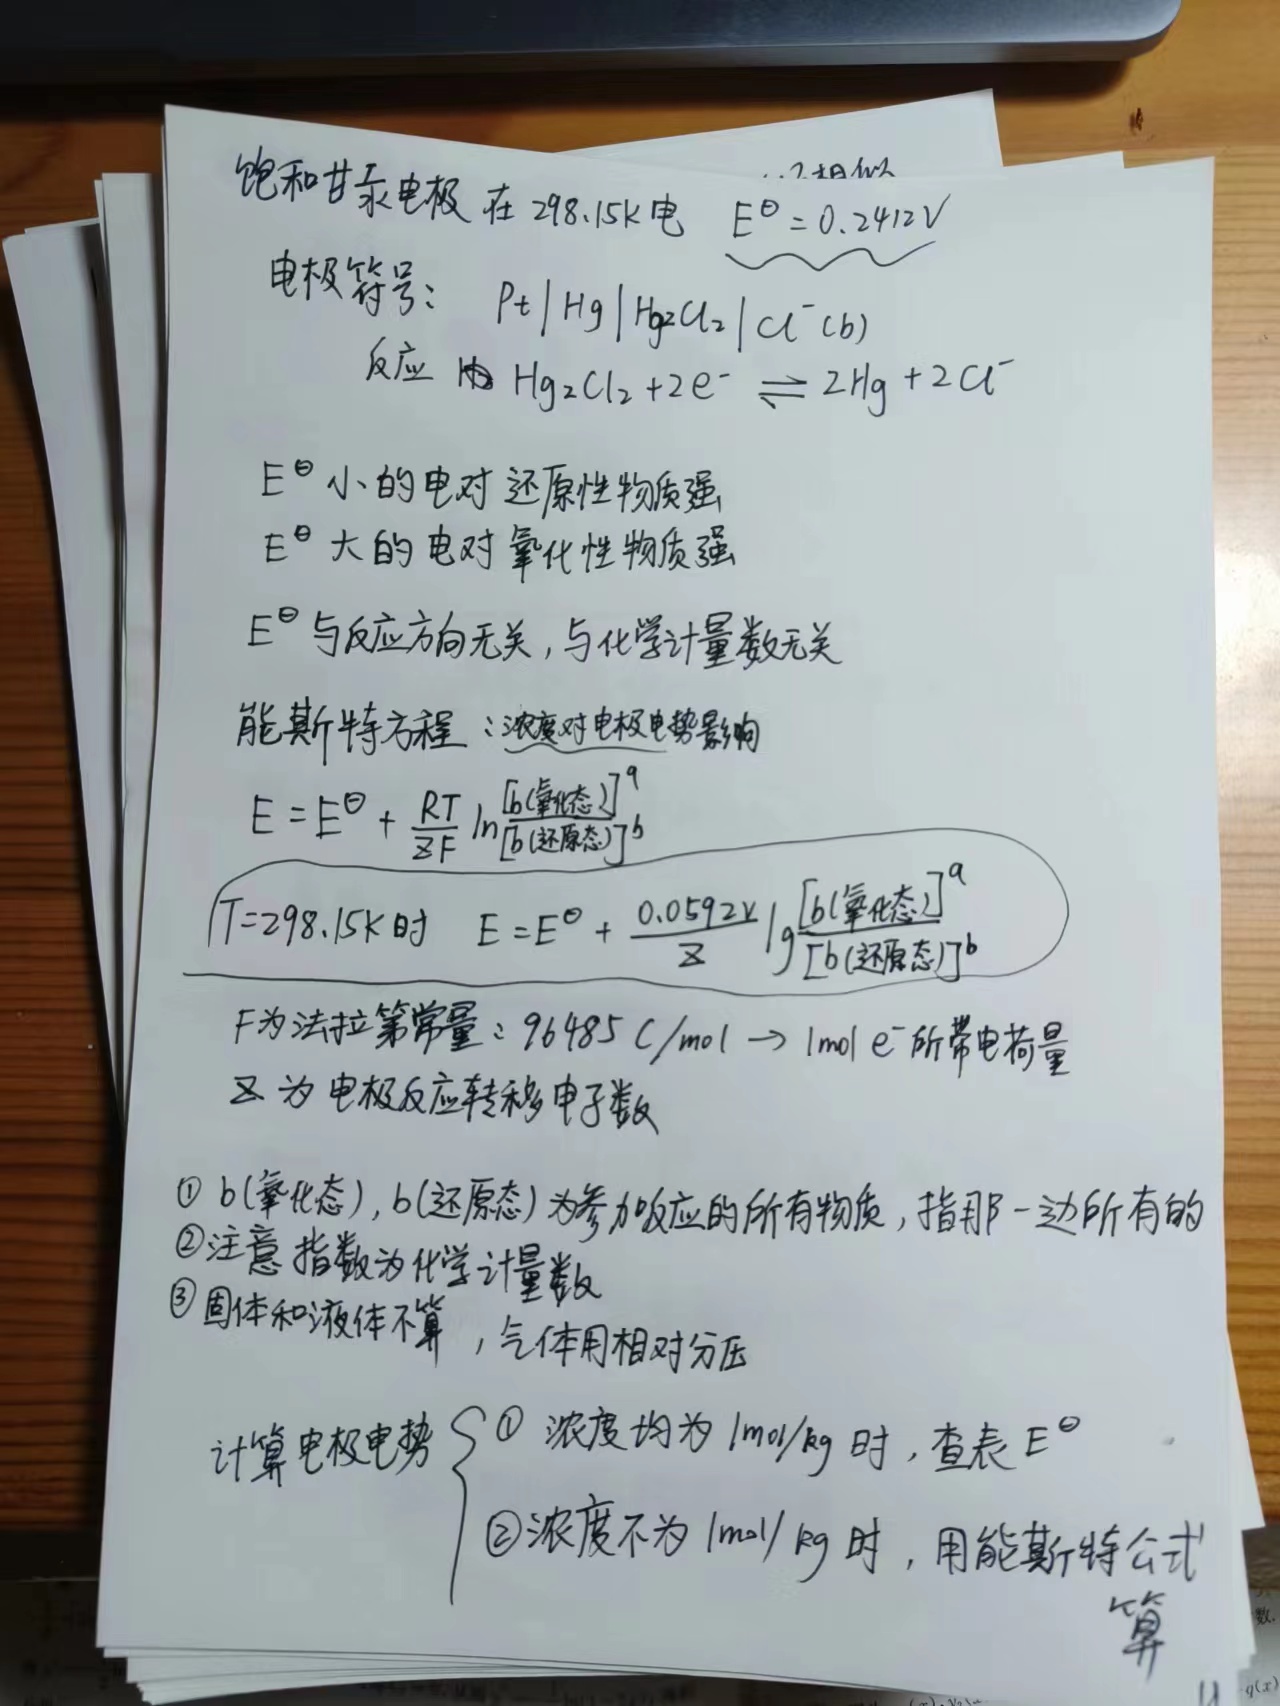 相似
饱和甘汞电极 在 298.15K 电 E⊖ = 0.2412V
电极符号: Pt | Hg | Hg2Cl2 | Cl⁻(b)
反应 Hg₂Cl₂ + 2e⁻ ⇌ 2Hg + 2Cl⁻
E⊖ 小的电对 还原性物质强
E⊖ 大的电对 氧化性物质强
E⊖ 与反应方向无关, 与化学计量数无关
能斯特方程 : 浓度对电极电势影响
E = E⊖ + RT/ZF ln [b(氧化态)]^a/[b(还原态)]^b
T=298.15K时 E = E⊖ + 0.0592V/Z lg [b(氧化态)]^a/[b(还原态)]^b
F为法拉第常量: 96485 C/mol → 1mol e⁻所带电荷量
Z 为 电极反应转移电子数
① b(氧化态), b(还原态) 为参加反应的所有物质, 指那一边所有的
②注意 指数为化学计量数
③固体和液体不算 , 气体用相对分压
计算电极电势 { ① 浓度均为 1mol/kg 时, 查表 E⊖
②浓度不为 1mol/kg 时, 用能斯特公式
算
数.
q(x)